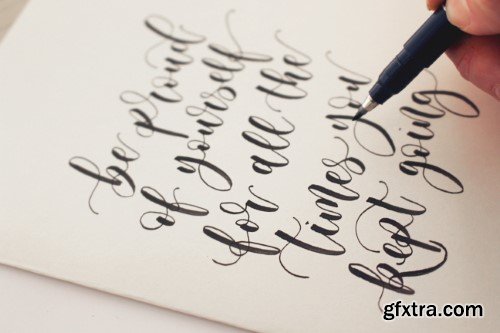 be proud
of yourself
for all the
times you
kept going
gfxtra.com